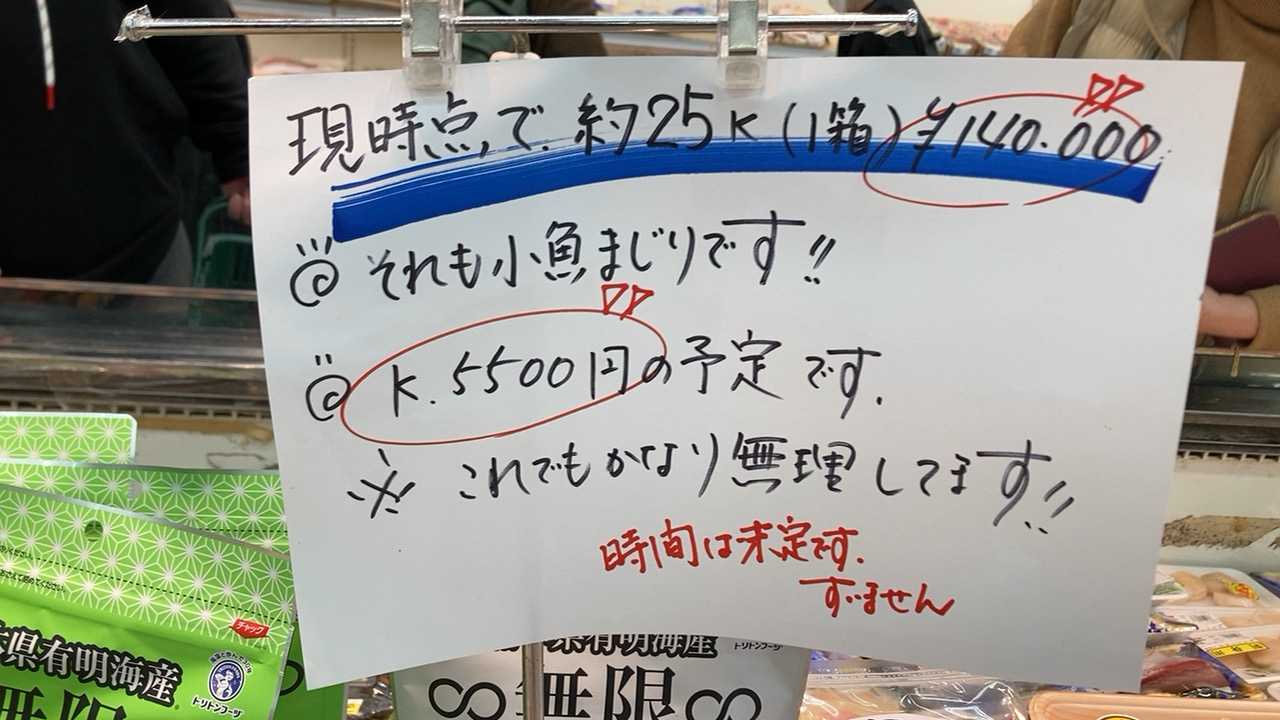 現時点で.約25K(1箱)¥140.000
◎それも小魚まじりです!!
◎K.5500円の予定です.
※これでもかなり無理してます!!
時間は未定です.
すいません
チャック
県有明海産
トリトンフーヅ
無限
県有明海産
トリトンフーヅ
∞無限∞